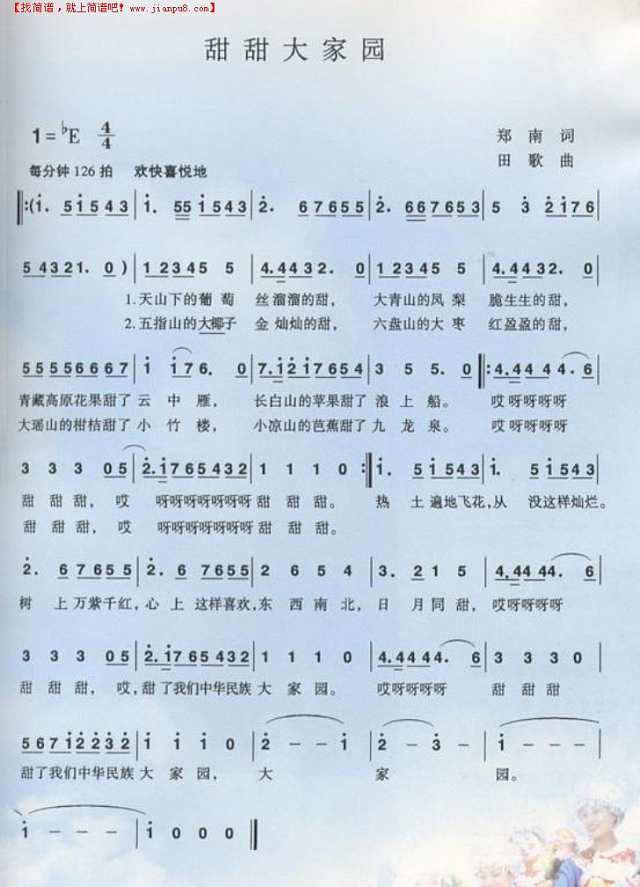 【找简谱，就上简谱吧! www.jianpu8.com】
甜甜大家园
1=♭E 4/4
郑南词
田歌曲
每分钟126拍 欢快喜悦地
‖:(1. 5 1 5 4 3 | 1. 55 1 5 4 3 | 2. 6 7 6 5 5 | 2. 6 6 7 6 5 3 | 5 3 2 1 7 6 |
5 4 3 2 1. 0 ) | 1 2 3 4 5 5 | 4. 4 4 3 2. 0 | 1 2 3 4 5 5 | 4. 4 4 3 2. 0 |
1.天山下的葡萄 丝溜溜的甜， 大青山的凤梨 脆生生的甜，
2.五指山的大椰子 金灿灿的甜， 六盘山的大枣 红盈盈的甜，
5 5 5 5 5 6 6 6 7 | 1 1 7 6. 0 | 7. 1 2 1 7 6 5 4 | 3 5 5. 0 ‖: 4. 4 4 4 4. 6 |
青藏高原花果甜了 云中雁， 长白山的苹果甜了 浪上船。 哎呀呀呀呀
大瑶山的柑桔甜了 小竹楼， 小凉山的芭蕉甜了 九龙泉。 哎呀呀呀呀
3 3 3 0 5 | 2. 1 7 6 5 5 3 2 | 1 1 1 0 :‖ 1. 5 1 5 4 3 | 1. 5 1 5 4 3 |
甜甜甜， 哎 呀呀呀呀呀呀呀 甜甜甜。 热土遍地飞花，从 没这样灿烂。
甜甜甜， 哎 呀呀呀呀呀呀呀 甜甜甜。
2. 6 7 6 5 5 | 2. 6 7 6 5 5 | 2 6 5 4 | 3. 2 1 5 | 4. 4 4 4 4. 6 |
树上万紫千红，心上这样喜欢，东西南北，日月同甜，哎呀呀呀呀
3 3 3 0 5 | 2. 1 7 6 5 5 3 2 | 1 1 1 0 | 4. 4 4 4 4. 6 | 3 3 3 0 |
甜甜甜， 哎，甜了我们中华民族 大家园。 哎呀呀呀呀 甜甜甜
5 6 7 1 2 2 3 2 | 1 1 1 0 | 2 - - 1 | 2 - 3 - | 1 - - - |
甜了我们中华民族 大家园， 大 家 园。
1 - - - | 1 0 0 0 ‖